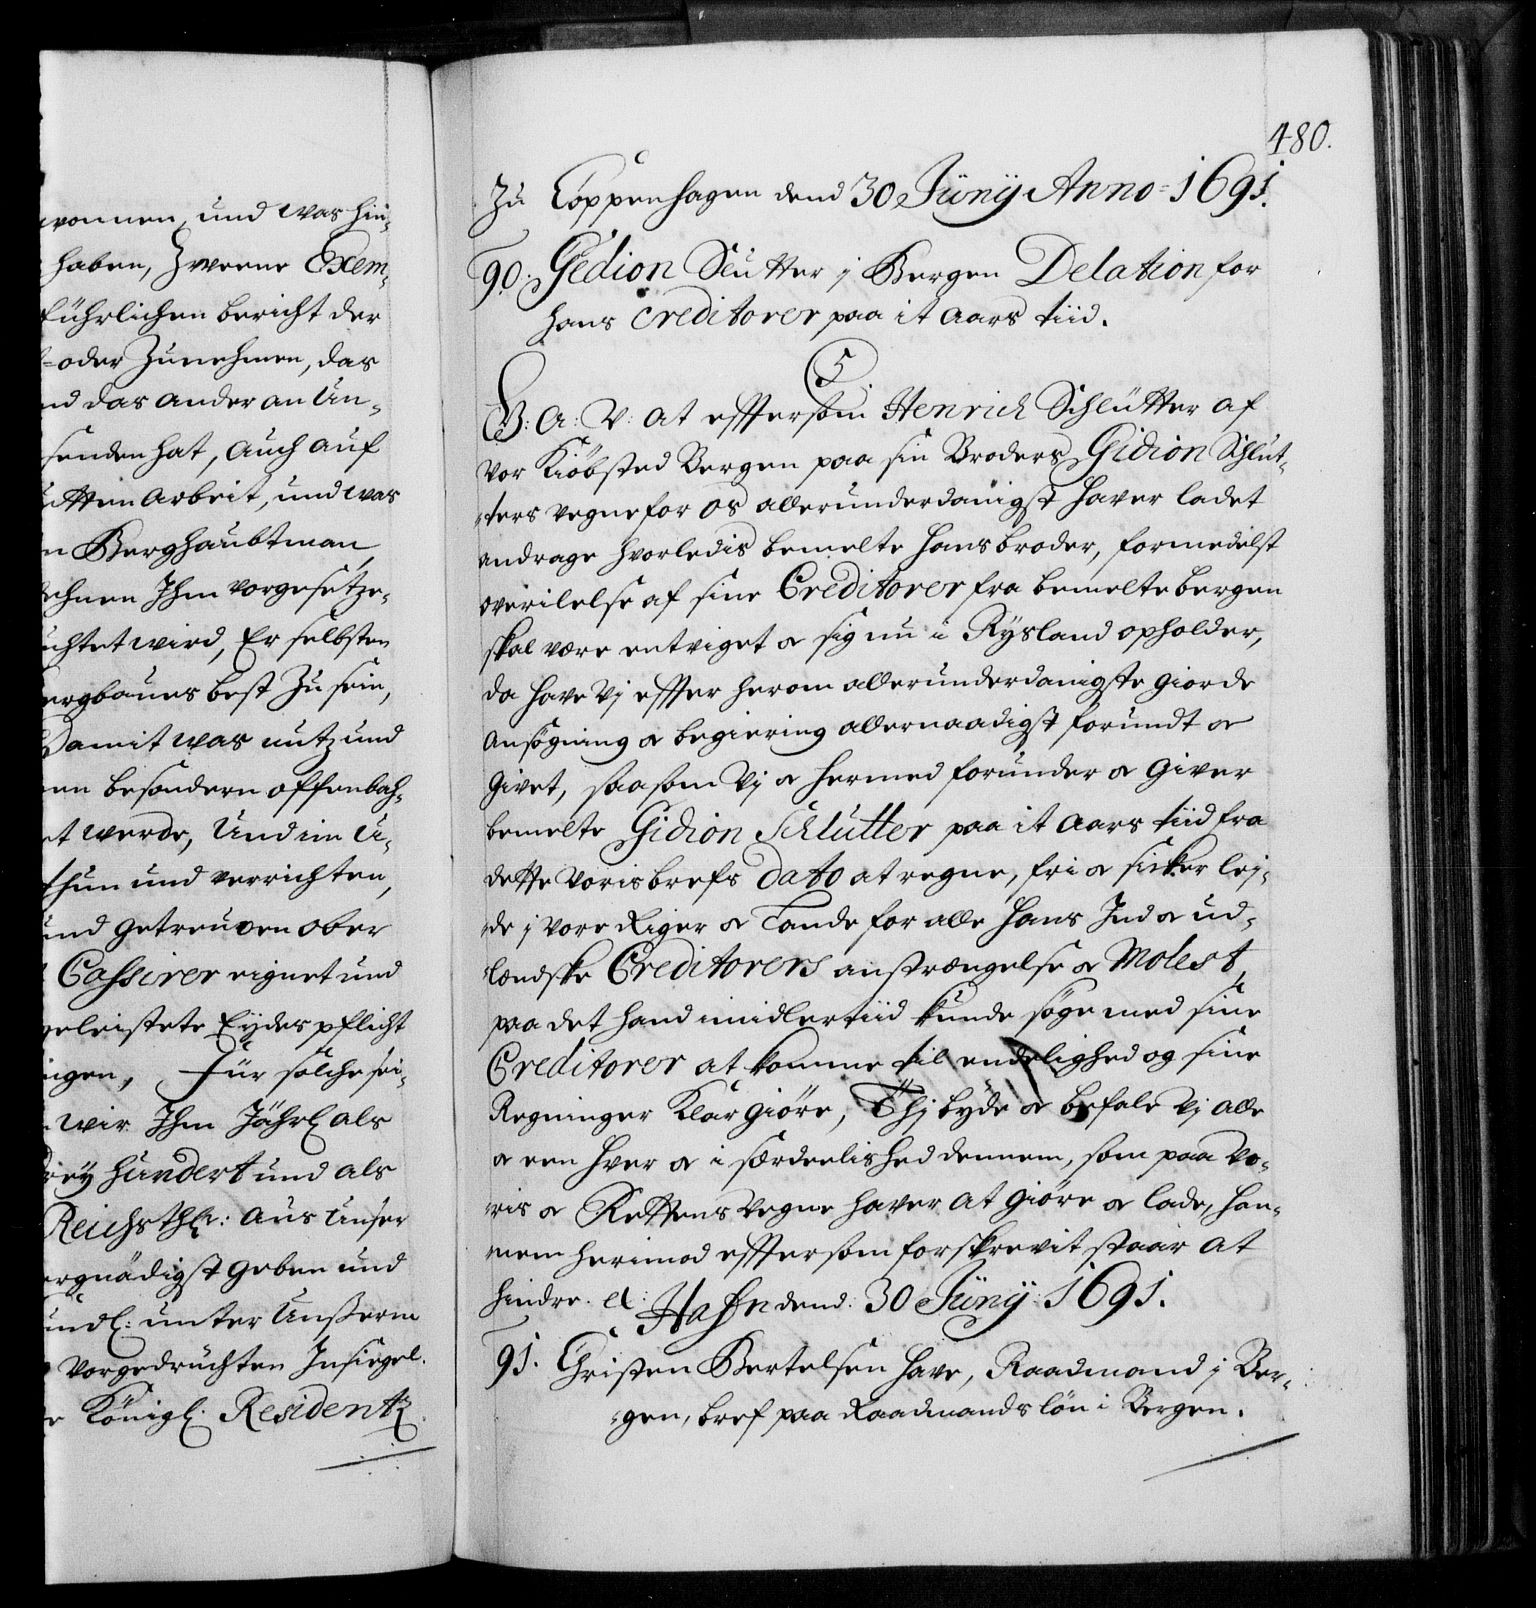 wonnen, und was hin-
haben, Zweene Exem-
führlichen bericht der
oder Zunehmen, das
nd das ander an Un-
senden hat, auch auf
tten arbeit, und was
n Berghaubtman,
ehnen Ihm vorgesetze-
chtet wird, Er selbsten
ergbaues best zu sein,
Damit was nutz und
en besondern offenbah-
et werde, Und im U-
thun und verrichten,
und getreuven ober
Cassirer eignet und
geleistete Eydes pflicht
ngen, für solche sei-
wir Ihm Jährl als
rey hundert und als
Reichsthlr: aus Unser
ergnädigst geben und
undl: unter Unserm
vorgedruchten Insiegel.
e Königl. Residentz.
480.
Zu Coppenhagen dend 30 Junij Anno 1691.
90. Gedion Slutter j Bergen Delation for
hans Creditorer paa it aars tiid.
C5
G: A: V: at effterson Henrich Schlutter af
vor Kiöbsted Bergen paa sin Broders Gidion Schlut-
ters vegne for os allerunderdanigst haver ladet
andrage hvorledis bemelte hans broder, formedelst
overilelse af sine Creditorer fra bemelte bergen
skal være entviget & sig nu i Rysland opholder,
da have Vj effter herom allerunderdanigste giorde
Ansøgning & begiering allernaadigst forundt &
givet, saa som Vj & hermed forunder & Giver
bemelte Gidion Schlutter paa it aars tiid fra
dette Voris brefs Dato at regne, fri & sicker lej-
de j vore Riger & Lande for alle hans Ind & ud-
lændske Creditorers anstrængelse & Molest,
paa det hand imidlertiid kunde søge med sine
Creditorer at komme til endelighed og sine
Regninger Klar giöre, Thj byde & befale Vj alle
& een hver & i særdeelished dennem, som paa Vo-
ris & Rettens Vegne haver at giøre & lade, han-
nem herimod efftersom forskrevit staar at
hindre. &: Hafn dend: 30 Junij 1691.
91. Christen Bertelsen have, Raadmand j Ber-
gen, bref paa Raadmands løn i Bergen.